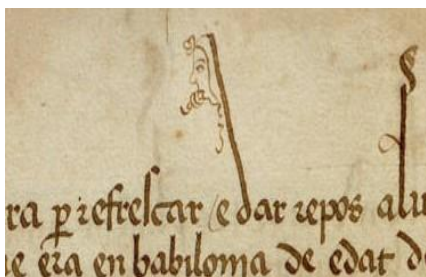 ra ꝑ refrescar e dar repos alu
ne era en babilonia de edat de